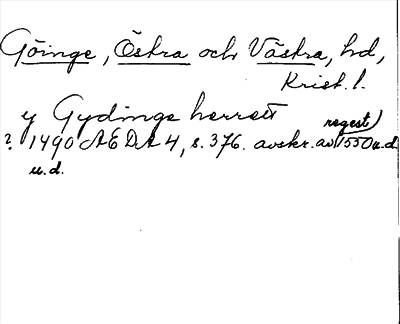 Göinge, Östra och Västra, hd,
Krist. l.
y Gydinge herrett
? 1490 AEDA 4, s. 376. avskr. av regest) 1550 u.d.
u.d.